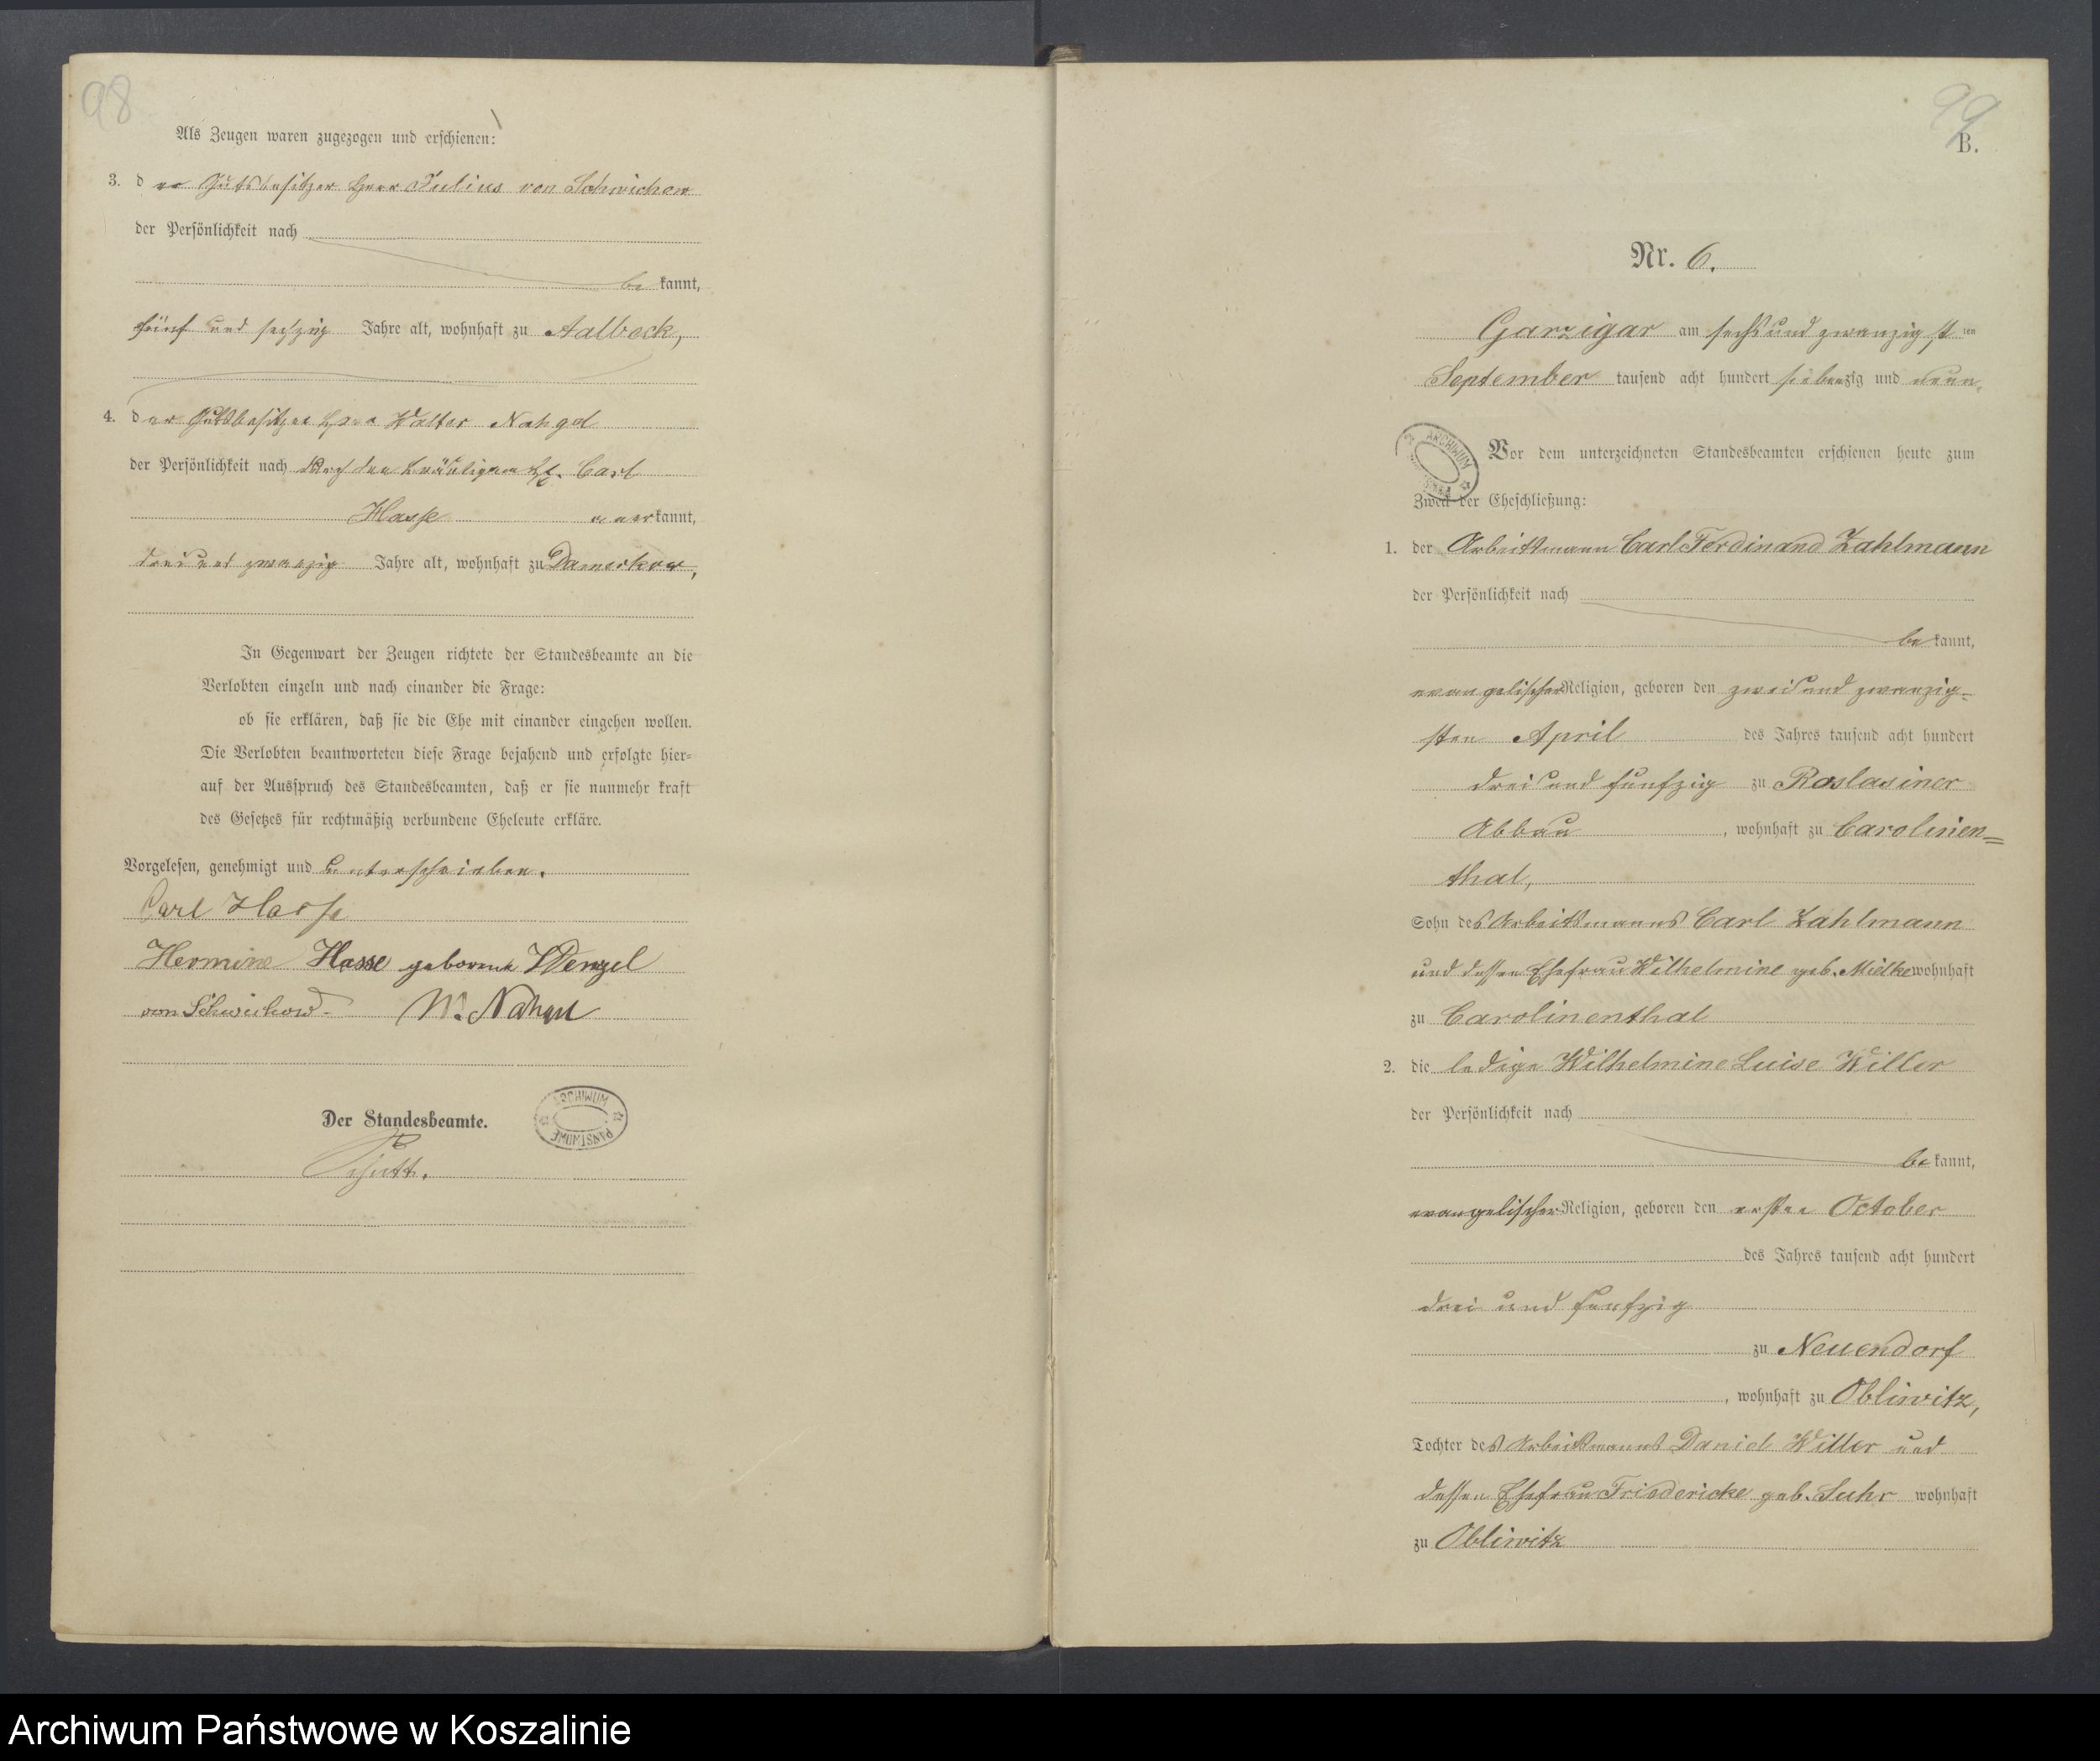 98
Als Zeugen waren zugezogen und erschienen:
3. der Gutsbesitzer Herr Julius von Schwichow
der Persönlichkeit nach
bekannt,
fünf und sechzig Jahre alt, wohnhaft zu Aalbeck,
4. der Gutsbesitzer Herr Walter Nahgel
der Persönlichkeit nach durch den Bräutigam Carl
Hasse anerkannt,
drei und zwanzig Jahre alt, wohnhaft zu Damerkow,
In Gegenwart der Zeugen richtete der Standesbeamte an die
Verlobten einzeln und nach einander die Frage:
ob sie erklären, daß sie die Ehe mit einander eingehen wollen.
Die Verlobten beantworteten diese Frage bejahend und erfolgte hier=
auf der Ausspruch des Standesbeamten, daß er sie nunmehr kraft
des Gesetzes für rechtmäßig verbundene Eheleute erkläre.
Vorgelesen, genehmigt und unterschrieben.
Carl Hasse
Hermine Hasse geborene Wenzel
von Schwichow W. Nahgel
Der Standesbeamte.
ARCHIWUM PAŃSTWOWE
99
B.
Nr. 6.
Garzigar am sechs und zwanzigsten
September tausend acht hundert siebenzig und neun
ARCHIWUM
Vor dem unterzeichneten Standesbeamten erschienen heute zum
Zweck der Eheschließung:
1. der Arbeitsmann Carl Ferdinand Zahlmann
der Persönlichkeit nach
bekannt,
evangelischer Religion, geboren den zwei und zwanzig=
sten April des Jahres tausend acht hundert
drei und funfzig zu Roslasiner
Abbau, wohnhaft zu Carolinen=
thal,
Sohn des Arbeitsmanns Carl Zahlmann
und dessen Ehefrau Wilhelmine geb. Mielke wohnhaft
zu Carolinenthal
2. die ledige Wilhelmine Luise Willer
der Persönlichkeit nach
bekannt,
evangelischer Religion, geboren den ersten October
des Jahres tausend acht hundert
drei und funfzig
zu Neuendorf
, wohnhaft zu Obliwitz,
Tochter des Arbeitsmanns Daniel Willer und
dessen Ehefrau Friedericke geb. Suhr wohnhaft
zu Obliwitz
Archiwum Państwowe w Koszalinie